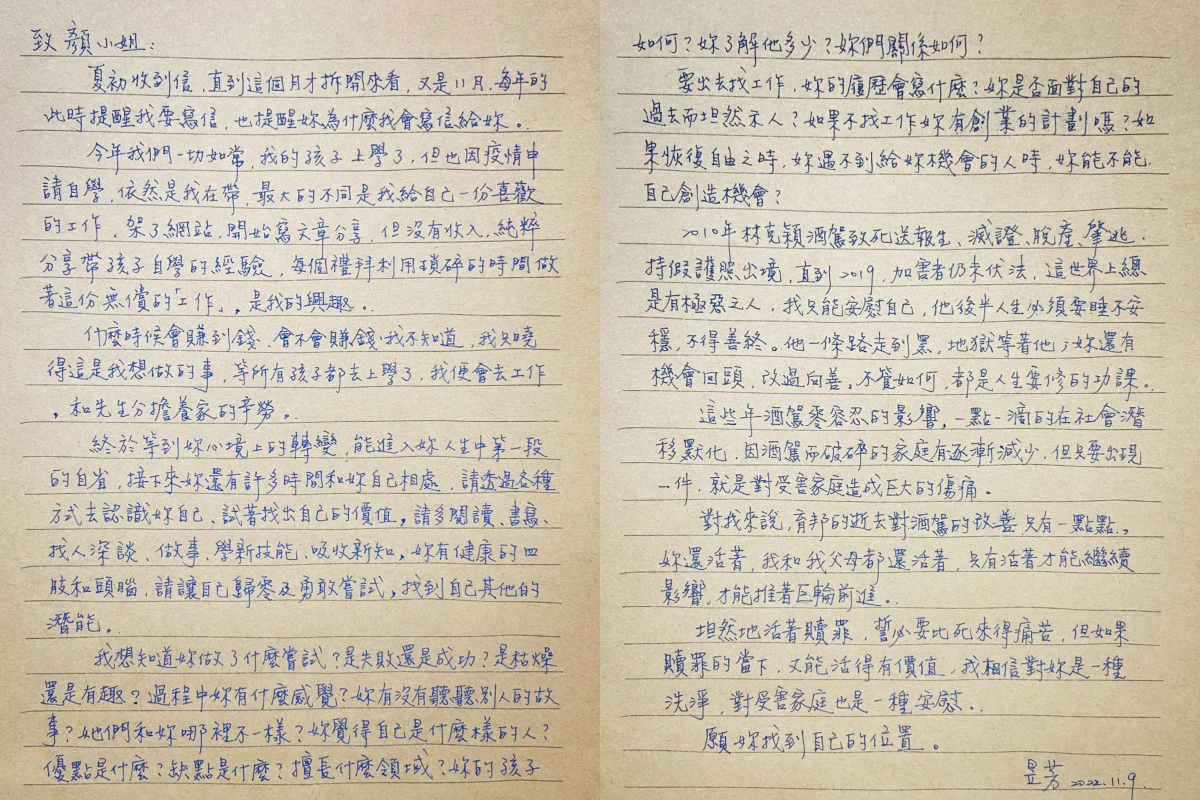 致 顏小姐：
夏初收到信，直到這個月才拆開來看，又是11月，每年的
此時提醒我要寫信，也提醒妳為什麼我會寫信給妳。
今年我們一切如常，我的孩子上學了，但也因疫情申
請自學，依然是我在帶，最大的不同是我給自己一份喜歡
的工作，架了網站，開始寫文章分享，但沒有收入，純粹
分享帶孩子自學的經驗，每個禮拜利用瑣碎的時間做
著這份無償的「工作」，是我的興趣。
什麼時候會賺到錢、會不會賺錢，我不知道，我只曉
得這是我想做的事，等所有孩子都去上學了，我便會去工作
，和先生分擔養家的辛勞。
終於等到妳心境上的轉變，能進入妳人生中第一段
的自省，接下來妳還有許多時間和妳自己相處，請透過各種
方式去認識妳自己、試著找出自己的價值，請多閱讀、書寫、
找人深談、做事、學新技能、吸收新知，妳有健康的四
肢和頭腦，請讓自己歸零及勇敢嘗試，找到自己其他的
潛能。
我想知道妳做了什麼嘗試？是失敗還是成功？是枯燥
還是有趣？過程中妳有什麼感覺？妳有沒有聽聽別人的故
事？她們和妳哪裡不一樣？妳覺得自己是什麼樣的人？
優點是什麼？缺點是什麼？擅長什麼領域？妳的孩子
如何？妳了解他多少？妳們關係如何？
要出去找工作，妳的履歷會寫什麼？妳是否面對自己的
過去而坦然示人？如果不找工作妳有創業的計劃嗎？如
果恢復自由之時，妳遇不到給妳機會的人時，妳能不能
自己創造機會？
2010年林克穎酒駕致死送報生、滅證、脫產、肇逃、
持假護照出境，直到2019，加害者仍未伏法，這世界上總
是有極惡之人，我只能安慰自己，他後半人生必須要睡不安
穩，不得善終。他一條路走到黑，地獄等著他；妳還有
機會回頭，改過向善。不管如何，都是人生要修的功課。
這些年酒駕零容忍的影響，一點一滴的在社會潛
移默化，因酒駕而破碎的家庭有逐漸減少，但只要出現
一件，就是對受害家庭造成巨大的傷痛。
對我來說，育邦的逝去對酒駕的改善只有一點點，
妳還活著，我和我父母都還活著，只有活著才能繼續
影響，才能推著巨輪前進。
坦然地活著贖罪，誓必要比死來得痛苦，但如果
贖罪的當下，又能活得有價值，我相信對妳是一種
洗淨，對受害家庭也是一種安慰。
願妳找到自己的位置。
昱芳 2022.11.9.